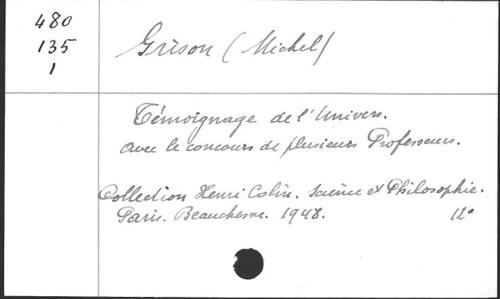 480
135
1
Grison (Michel)
Témoignage de l'Univers.
avec le concours de plusieurs Professeurs.
Collection Henri Colin. Science et Philosophie.
Paris. Beauchesne. 1948. 12°